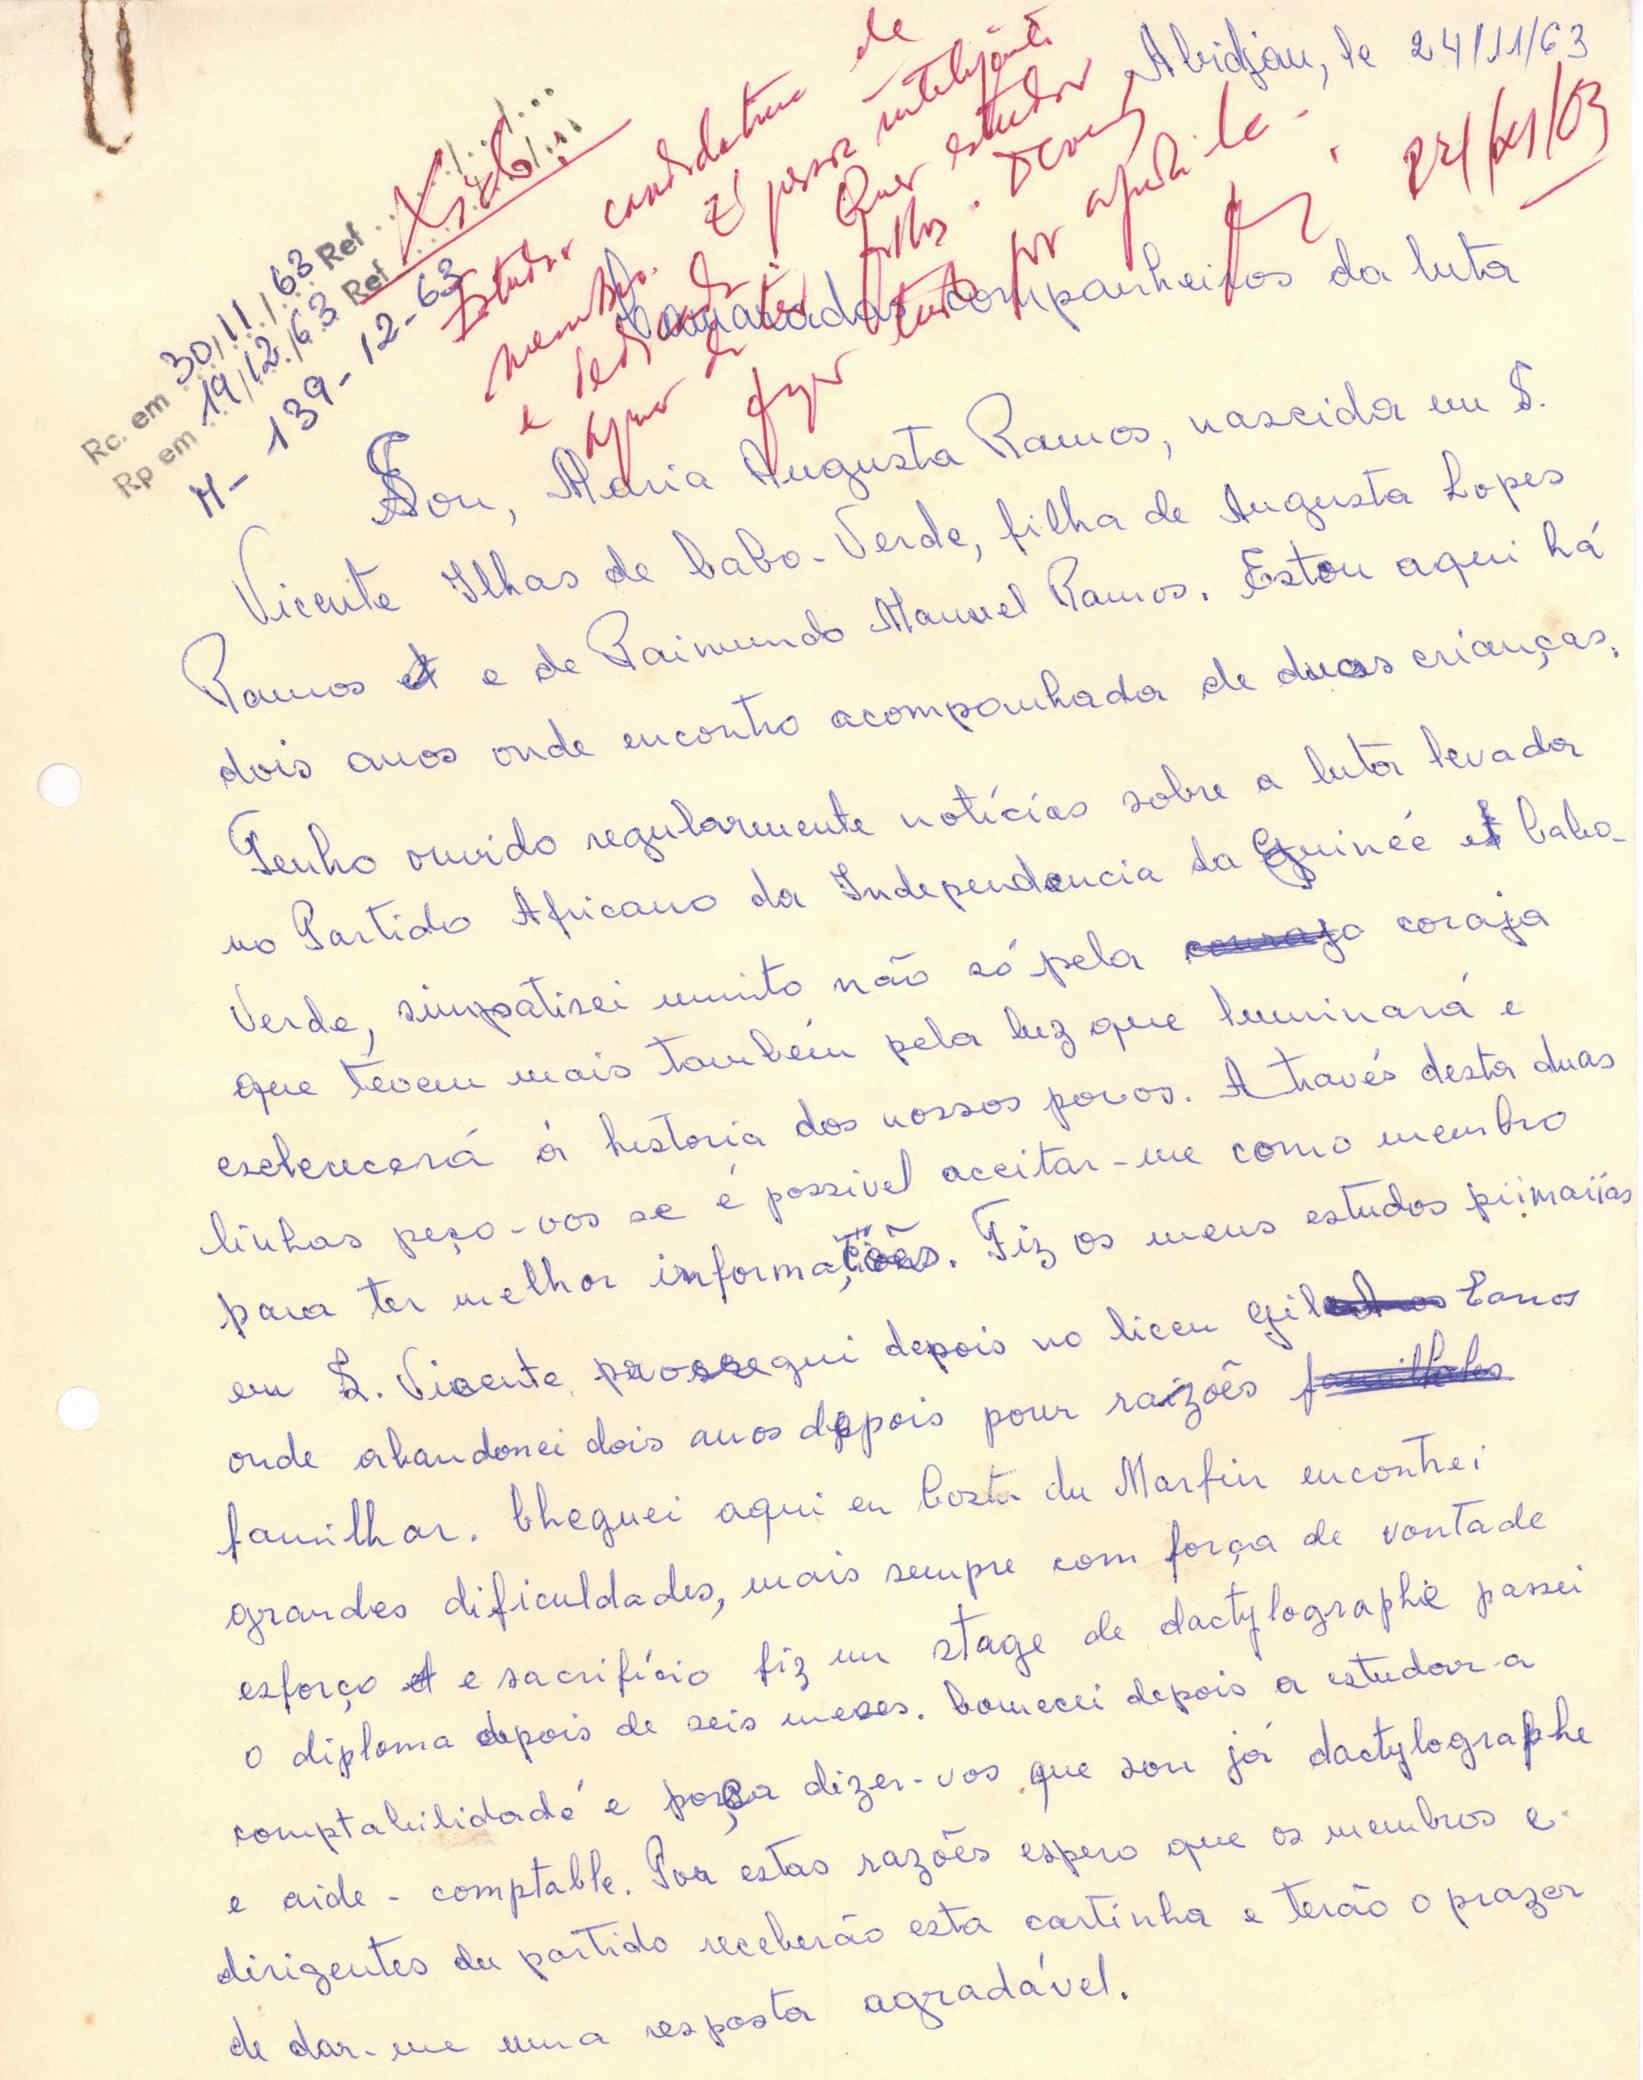 Abidjan, le 24/11/63
Rc. em 30/11/63 Ref
Rp em 19/12/63 Ref
M- 139-12-63
Xico
Estudar candidatura de
membro. É pessoa inteligente
e dedicada. Quer estudar
apesar de ter filhos. Devemos
fazer tudo por ajudá-la.
Camaradas companheiros da luta
Sou, Maria Augusta Ramos, nascida em S.
Vicente Ilhas de Cabo-Verde, filha de Augusta Lopes
Ramos e de Raimundo Manuel Ramos. Estou aqui há
dois anos onde encontro acompanhada de duas crianças.
Tenho ouvido regularmente notícias sobre a luta levada
no Partido Africano da Independencia da Guinée et Cabo-
Verde, simpatisei muito não só pela coraja
que tevem mais também pela luz que luminará e
esclerecerá á historia dos nossos povos. Através desta duas
linhas peço-vos se é possivel aceitar-me como membro
para ter melhor informações. Fiz os meus estudos primarias
em S. Vicente, prossegui depois no liceu Gil Eanos
onde abandonei dois anos depois pour raizões
familhar. Cheguei aqui en Costa du Marfin encontrei
grandes dificuldades, mais sempre com força de vontade
esforço e sacrifício fiz un stage de dactylographie passei
o diploma depois de seis meses. Comecei depois a estudar a
comptabilidade e posça dizer-vos que sou já dactylographe
e aide-comptable. Por estas razões espero que os membros e
dirigentes du partido receberão esta cartinha e terão o prazer
de dar-me uma resposta agradável.